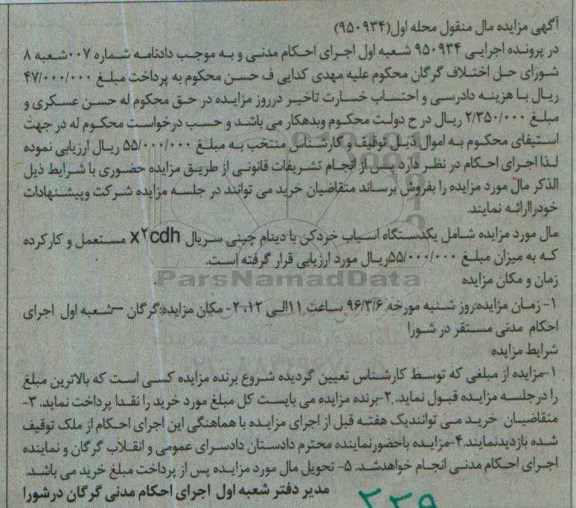 آگهی مزایده مال منقول محله اول(۹۵۰۹۳۴)
در پرونده اجرایی ۹۵۰۹۳۴ شعبه اول اجرای احکام مدنی و به موجب دادنامه شماره ۰۰۷شعبه ۸
شورای حل اختلاف گرگان محکوم علیه مهدی کدایی ف حسن محکوم به پرداخت مبلغ ۴۷/۰۰۰/۰۰۰
ریال با هزینه دادرسی و احتساب خسارت تاخیر درروز مزایده در حق محکوم له حسن عسکری و
مبلغ ۲/۳۵۰/۰۰۰ ریال در ح دولت محکوم وبدهکار می باشد و حسب درخواست محکوم له در جهت
استیفای محکوم به اموال ذیل توقیف و کارشناس منتخب به مبلغ ۵۵/۰۰۰/۰۰۰ ریال ارزیابی نموده
لذا اجرای احکام در نظر دارد پس از انجام تشریفات قانونی از طریق مزایده حضوری با شرایط ذیل
الذکر مال مورد مزایده را بفروش برساند متقاضیان خرید می توانند در جلسه مزایده شرکت وپیشنهادات
خودراارائه نمایند.
مال مورد مزایده شامل یکدستگاه اسیاب خردکن با دینام چینی سریال x۲cdh مستعمل و کارکرده
که به میزان مبلغ ۵۵/۰۰۰/۰۰۰ریال مورد ارزیابی قرار گرفته است.
ParsNamadData
زمان و مکان مزایده
۱- زمان مزایده:روز شنبه مورخه ۹۶/۳/۶ ساعت ۱۱الی ۱۲، ۲- مکان مزایده:گرگان –شعبه اول اجرای
احکام مدنی مستقر در شورا
شرایط مزایده
۱-مزایده از مبلغی که توسط کارشناس تعیین گردیده شروع برنده مزایده کسی است که بالاترین مبلغ
را درجلسه مزایده قبول نماید. ۲-برنده مزایده می بایست کل مبلغ مورد خرید را نقدا پرداخت نماید. ۳-
متقاضیان خرید می توانندیک هفته قبل از اجرای مزایده با هماهنگی این اجرای احکام از ملک توقیف
شده بازدیدنمایند.۴-مزایده باحضورنماینده محترم دادستان دادسرای عمومی و انقلاب گرگان و نماینده
اجرای احکام مدنی انجام خواهدشد. ۵- تحویل مال مورد مزایده پس از پرداخت مبلغ خرید می باشد.
مدیر دفتر شعبه اول اجرای احکام مدنی گرگان درشورا
۲۲۹